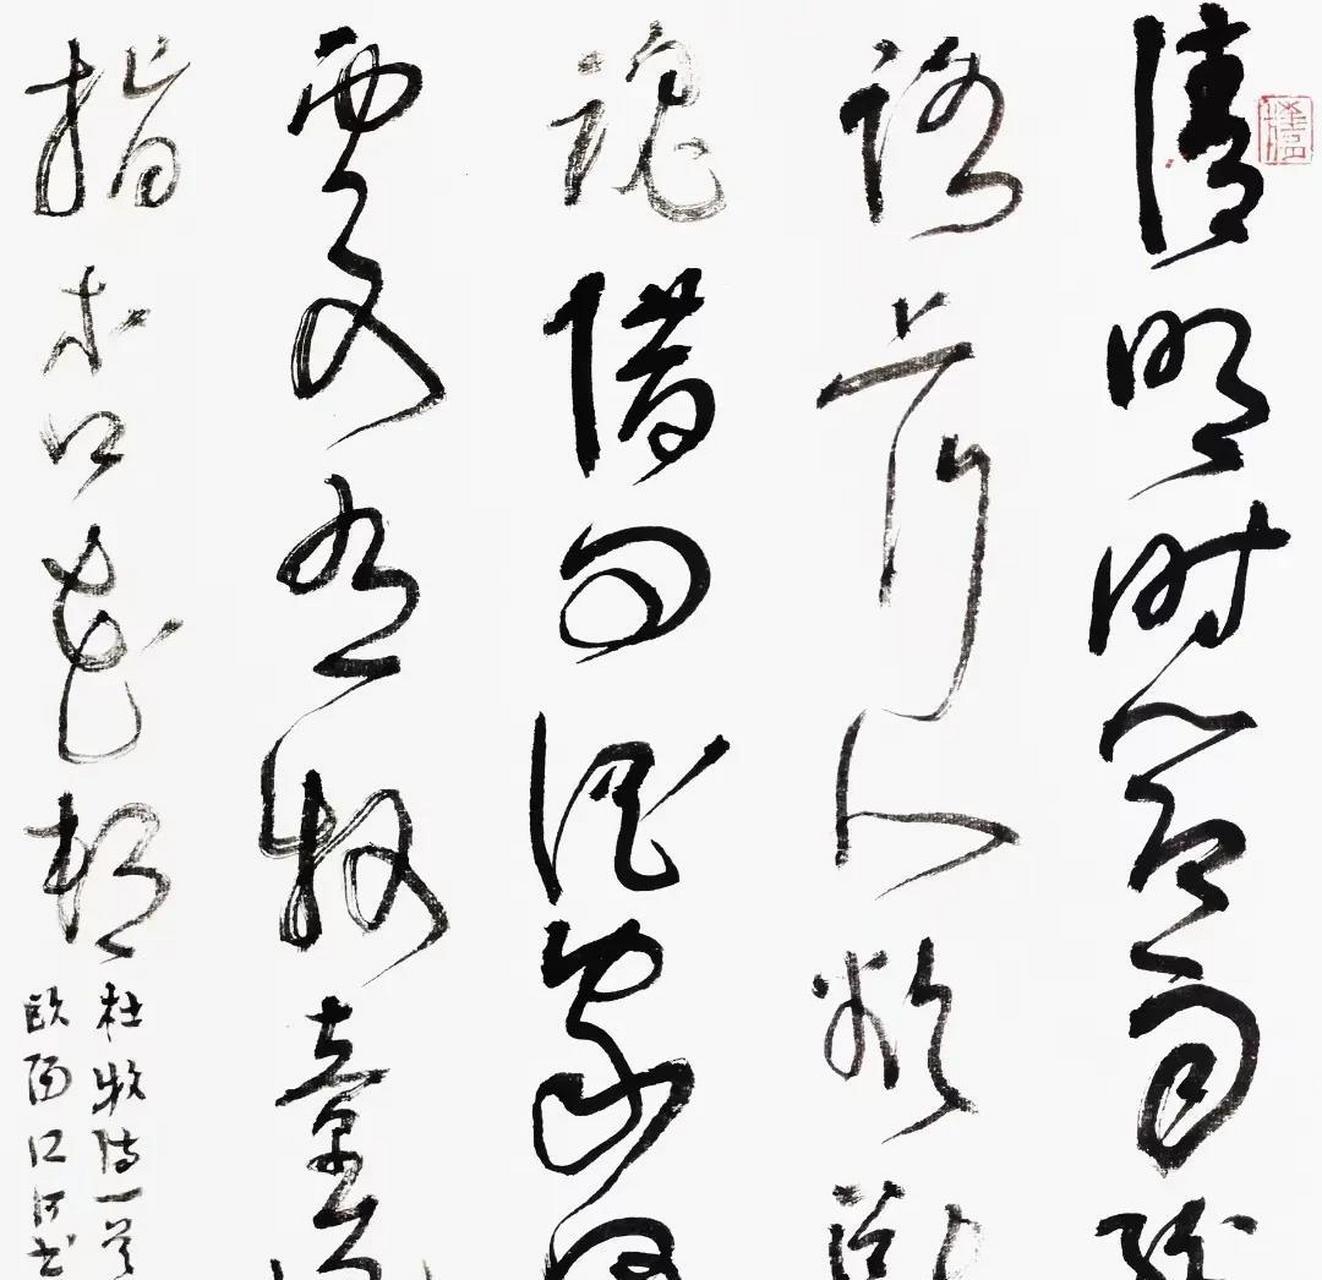 清明时节雨纷
路上行人欲断
魂借问酒家何
處有牧童遥
指杏花村
杜牧诗一首
欧阳江河书